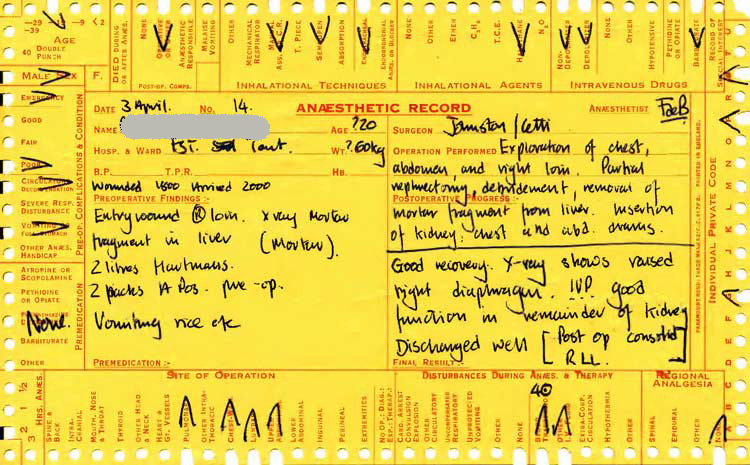 -29 -9 < 2
-39
AGE
40 DOUBLE PUNCH
MALE SEX F.
DIED DURING OR AFTER ANÆS.
NONE
ANÆSTHETIC RESPONSIBLE
MALAISE VOMITING
OTHER
POST-OP. COMPS.
MECHANICAL RESPIRATOR
T. PIECE
ABSORPTION
INHALATIONAL TECHNIQUES
NONE
OTHER
ETHER
C₂H₄
T.C.E.
N₂O
INHALATIONAL AGENTS
NONE
NON-DEPOLARISER
DEPOLARISER
OTHER
HYPOTENSIVE
PETHIDINE OR OPIATE
BARBITURATE
INTRAVENOUS DRUGS
RECORD OF SPECIAL INTEREST
DATE 3 April. No. 14. ANÆSTHETIC RECORD ANÆSTHETIST FaeB
NAME AGE ?20 SURGEON Johnston/
HOSP. & WARD Est. WT. ?60kg OPERATION PERFORMED Exploration of chest,
B.P. T.P.R. HB. abdomen, and right loin. Partial
Wounded 1800 Arrived 2000 nephrectomy, debridement, removal of
PREOPERATIVE FINDINGS :- POSTOPERATIVE PROGRESS :-
Entry wound (R) loin. X ray Mortar mortar fragment from liver. Insertion
fragment in liver (Mortar). of kidney, chest and abd. drains.
2 litres Hartmans. Good recovery. X-ray shows raised
2 packs A Pos. pre-op. right diaphragm. IVP good
Vomiting rice etc function in remainder of kidney
Discharged well [Post op consolid RLL.]
PREMEDICATION :- FINAL RESULT :-
PRE-OP. COMPLICATIONS & CONDITION
EMERGENCY
GOOD
FAIR
POOR
CIRCULATORY DECOMPENSATION
SEVERE RESP. DISTURBANCE
VOMITING FULL STOMACH
OTHER ANÆS. HANDICAP
PREMEDICATION
ATROPINE OR SCOPOLAMINE
PETHIDINE OR OPIATE
None.
BARBITURATE
OTHER
INDIVIDUAL PRIVATE CODE
PRINTED IN ENGLAND.
3 2 1 ½
HRS. ANÆS.
SITE OF OPERATION
SPINE & BACK
INTRA-CRANIAL
MOUTH, NOSE & THROAT
THYROID
OTHER HEAD & NECK
HEART & GT. VESSELS
PULMONARY
OTHER INTRA-THORACIC
CHEST
LUMBAR
LOWER ABDOMINAL
INGUINAL
PERINEAL
EXTREMITIES
NO OP.: DIAG.: EXP.: THERAP.:
DISTURBANCES DURING ANÆS. & THERAPY
CARD. ARREST CONVULSION EXPLOSION
OTHER CIRCULATORY
UNCOMPENSATED RESPIRATORY
UNPROTECTED VOMITING
OTHER
NONE
40
EXTRA-CORP. CIRCULATION
HYPOTHERMIA
OTHER
REGIONAL ANALGESIA
SPINAL
EPIDURAL
OTHER